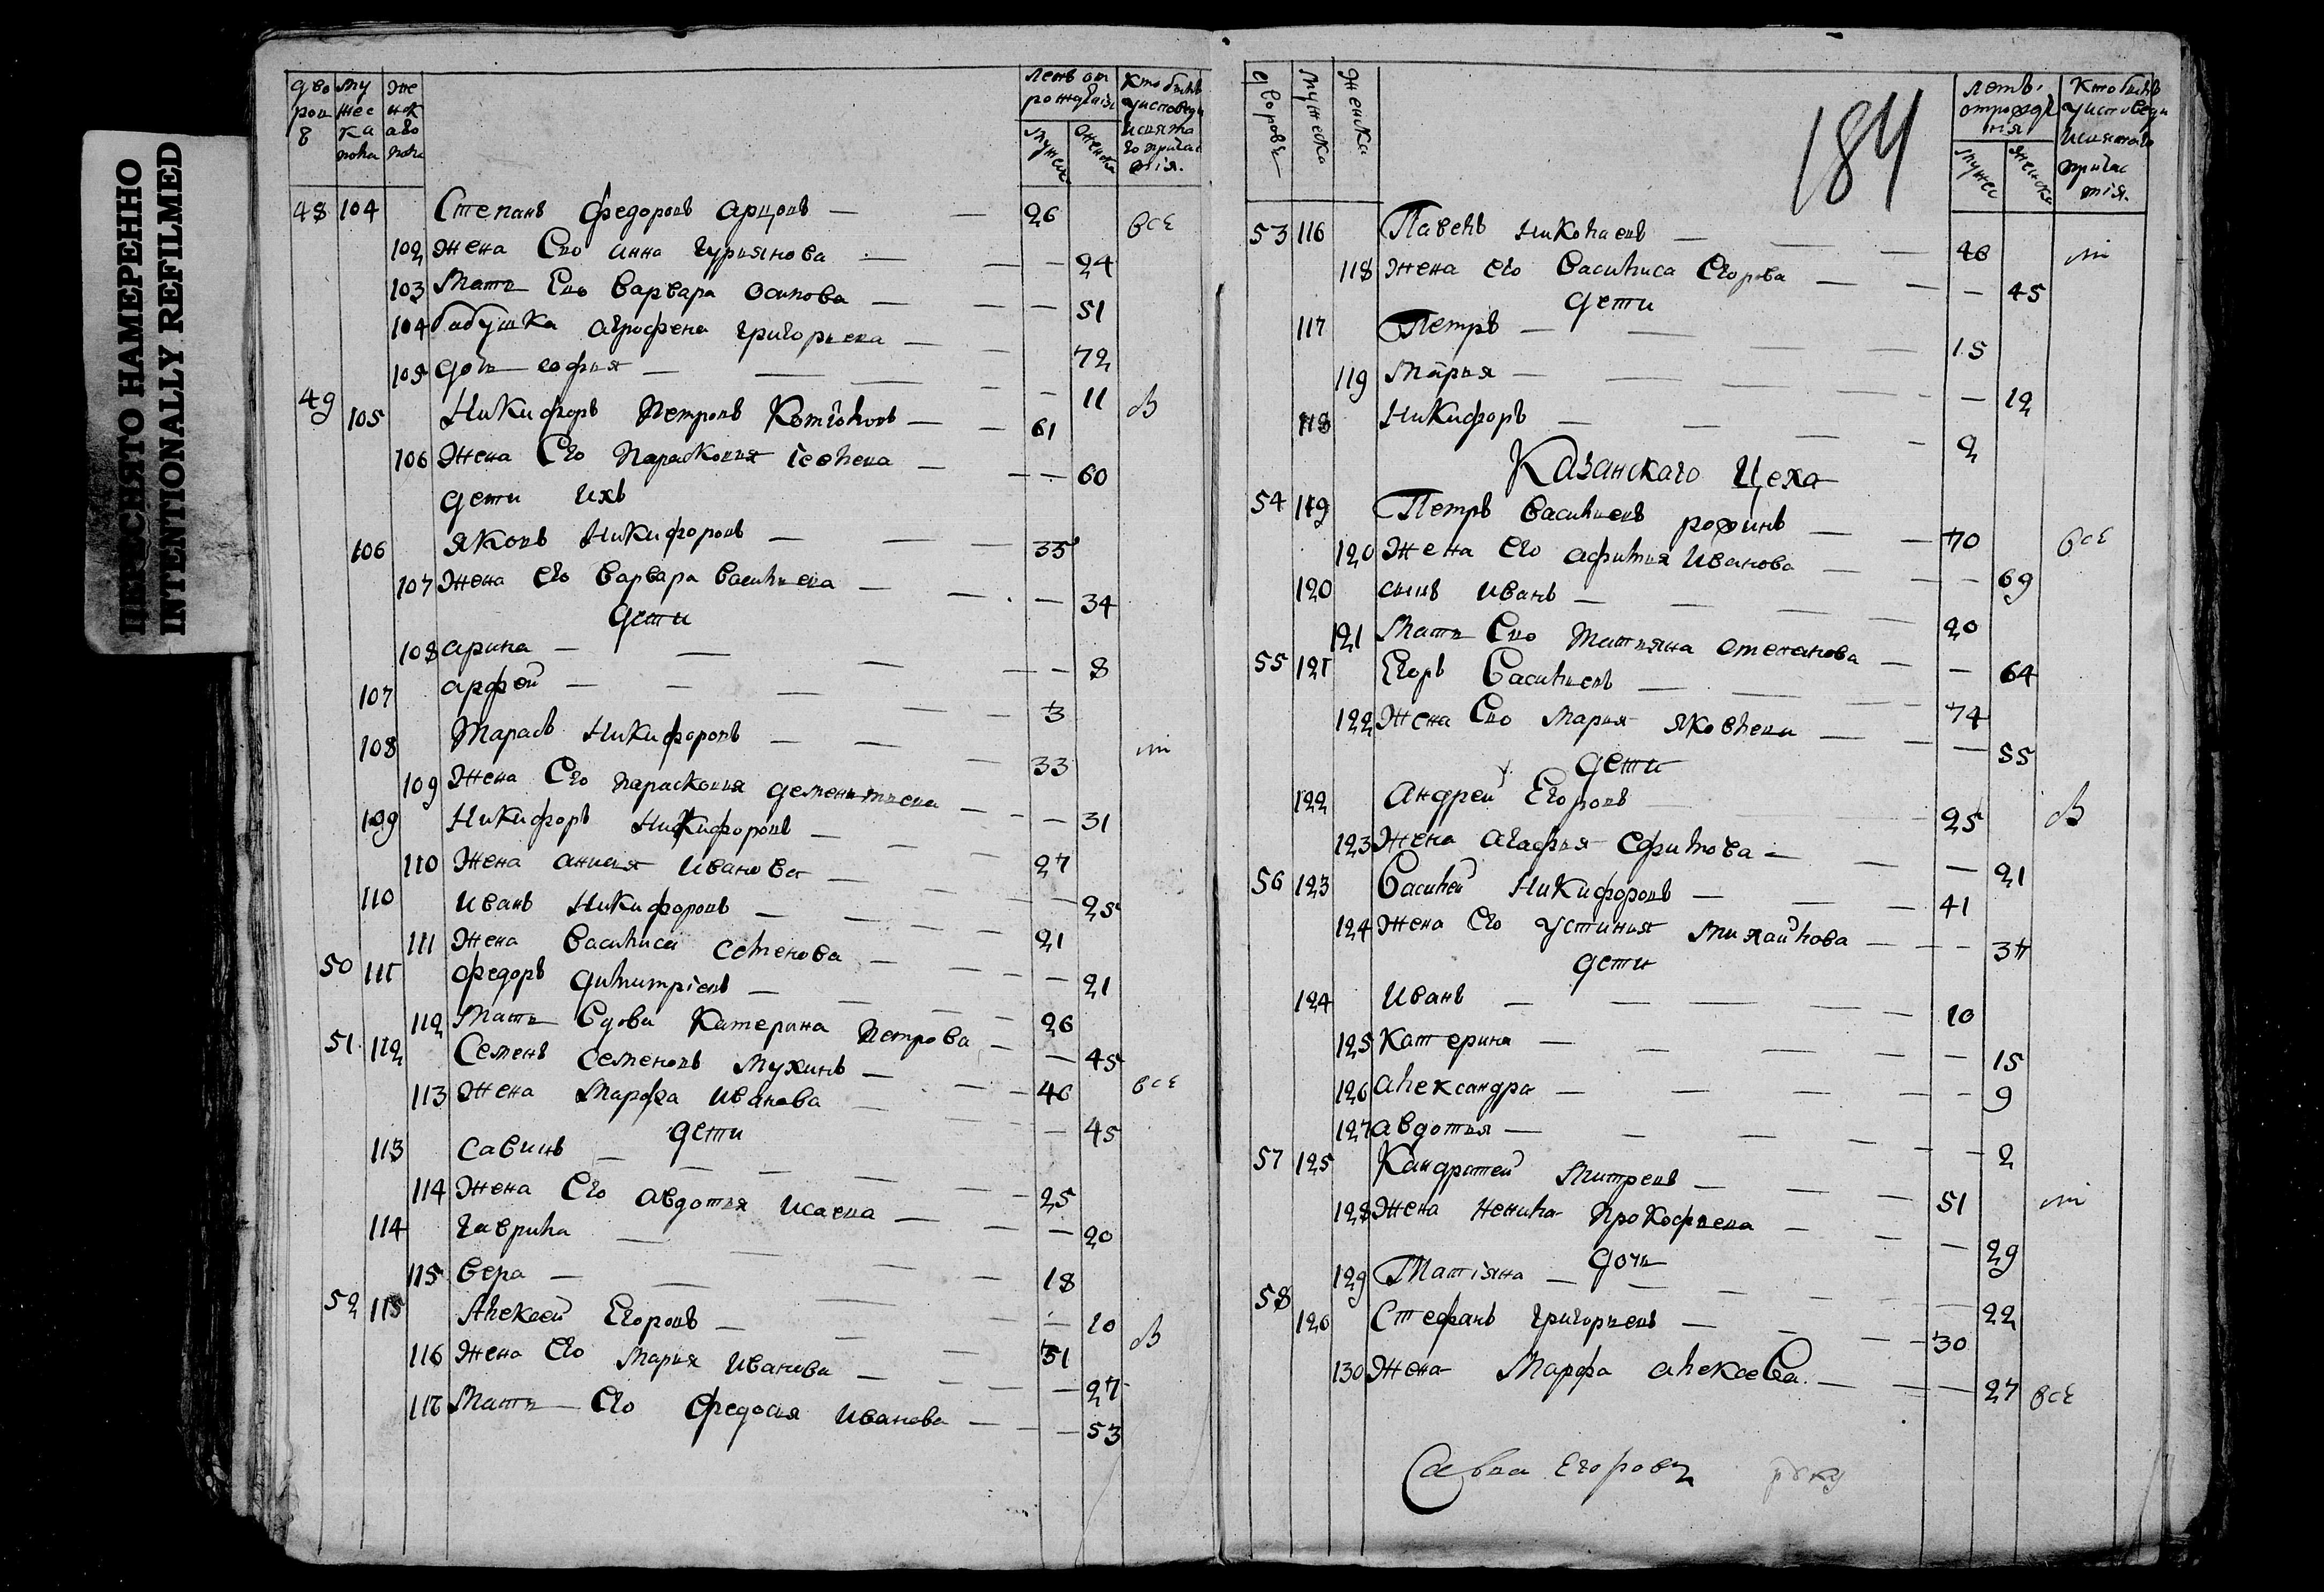 ПЕРЕСНЯТО НАМЕРЕННО
INTENTIONALLY REFILMED
дво ров ъ
му жес ка пола
же нск аго пола
летъ от рождения
мужск
женска
кто былъ у исповеди и свята го причас тiя.
48 104 Степанъ федоровъ — — 26 все
102 жена Ево анна гурьянова — — — 24
103 Мать Ево Варвара осипова — — — 51
104 бабушка агрофена григорьева — — 72
105 дочь софья — — — — — 11
49 105 Никифоръ Петровъ — — 61 в
106 Жена Его парасковия — — — 60
дети ихъ
106 яковъ Никифоровъ — — — 35
107 Жена его варвара васильева — — — 34
дети
108 арина — — — — — 8
107 арфей — — — — — 3
108 Тарасъ Никифоровъ — — — 33
109 Жена Его парасковия дементиева — — — 31
109 Никифоръ Никифоровъ — — — 27
110 Жена анисия Иванова — — — — 25
110 иванъ Никифоровъ — — — — 21
111 Жена Василиса — — — — 21
50 111 федоръ дмитриевъ — — — — 26
112 Мать вдова Катерина петрова — — 45
51 112 Семенъ семеновъ мухинъ — — — 46 все
113 Жена Марфа иванова — — — 45
дети
113 савинъ — — — — — — 25
114 Жена Его авдотия исаева — — — 20
114 гаврила — — — — — 18
115 вера — — — — — 10
52 115 Алексей Егоровъ — — — 31 в
116 Жена Его мария иванова — — — — 27
117 Мать Его федосия иванова — — — 53
184
дворовъ
мужска
женска
летъ отрожде ния
мужес
женска
кто былъ у исповеди и святаго причас тiя.
53 116 Павелъ николаевъ — — — 46
118 жена его василиса Егорова — — — 45
дети
117 Петръ — — — — 15
119 Мария — — — — — 12
118 Никифоръ — — — — 2
Казанскаго цеха
54 119 Петръ василиевъ — — 70 все
120 Жена Его афимия иванова — — — 69
120 сынъ иванъ — — — — 20
121 Мать Ево татияна степанова — — 64
55 121 Егоръ Василиевъ — — — 74
122 Жена Ево мария яковлева — — — 55
дети
122 андрей Егоровъ — — — 25 в
123 Жена агафия — — — 21
56 123 василей Никифоровъ — — — 41
124 Жена Его устиния михайлова — — — 34
дети
124 иванъ — — — — — 10
125 Катерина — — — — — 15
126 александра — — — — — 9
127 авдотия — — — — — — 2
57 125 Кандратей митревъ — — — 51
128 Жена Прокофиева — — — 29
дочь
129 Татiяна — — — — — 22
58 126 Стефанъ григорьевъ — — — — 30
130 Жена Марфа алексеева — — — 27 все
Савва Егоровъ руку